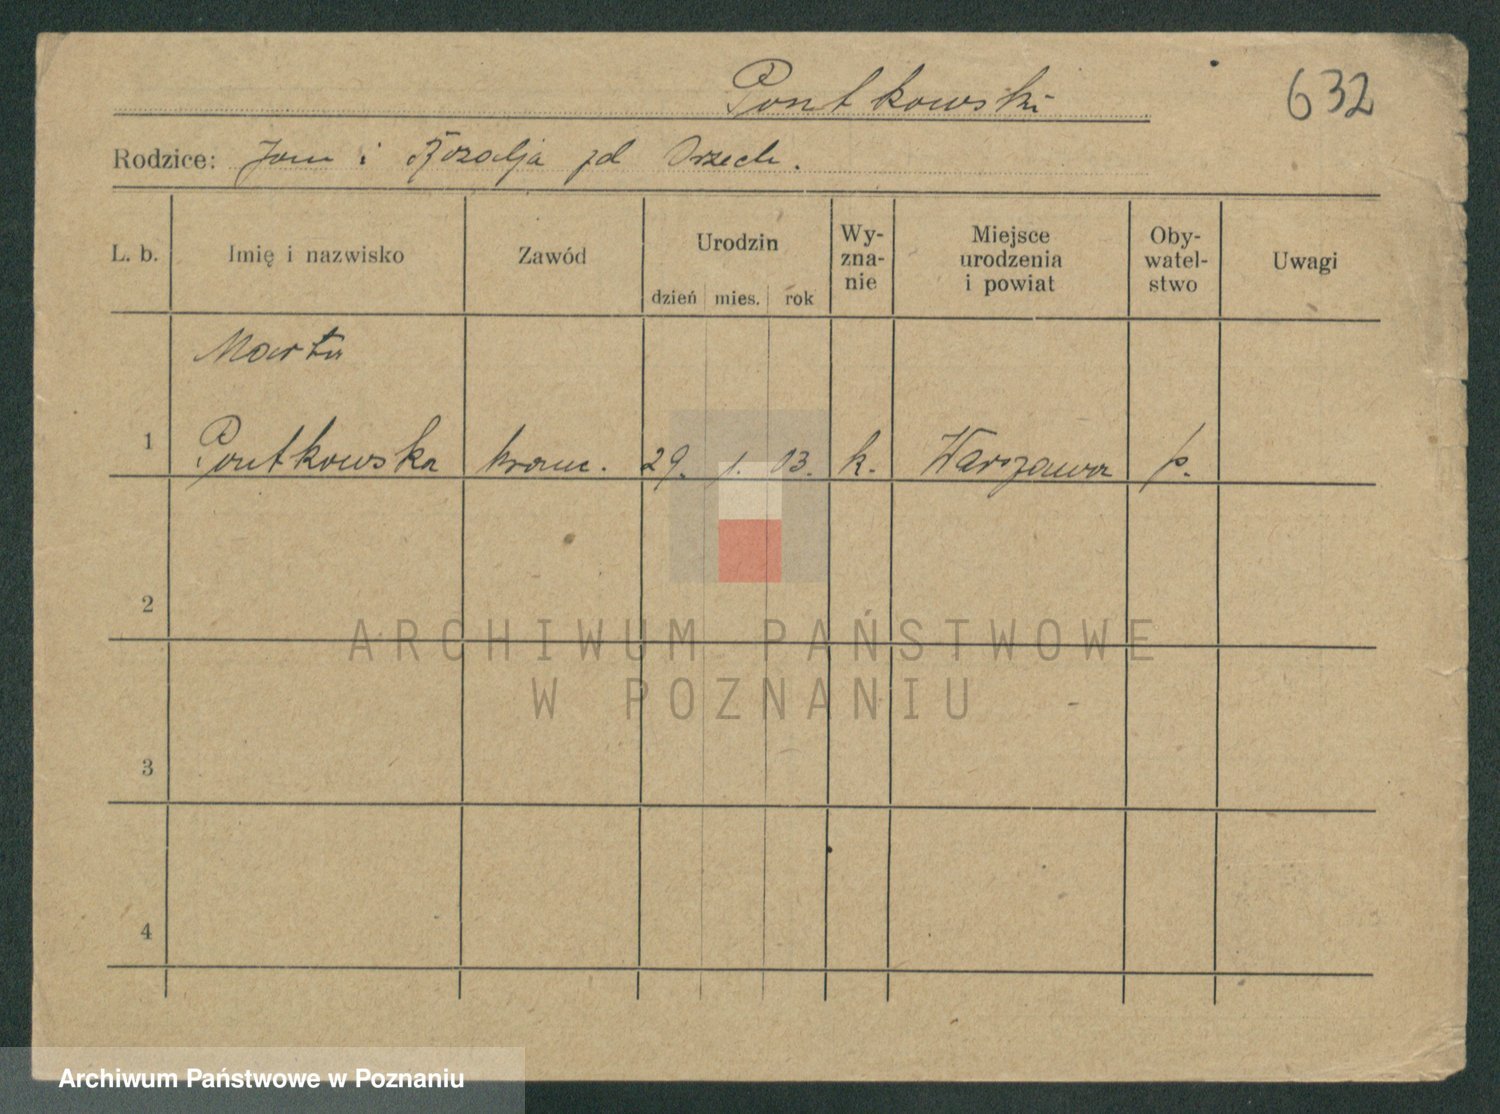 Pontkowski
632
Rodzice: Jan i Rozalja zd Orzech.
L. b. Imię i nazwisko Zawód Urodzin dzień mies. rok Wy-zna-nie Miejsce urodzenia i powiat Oby-watel-stwo Uwagi
Marta
1 Pontkowska kraw. 29. 1. 03. k. Warszawa p.
2
3
4
ARCHIWUM PAŃSTWOWE
W POZNANIU
Archiwum Państwowe w Poznaniu